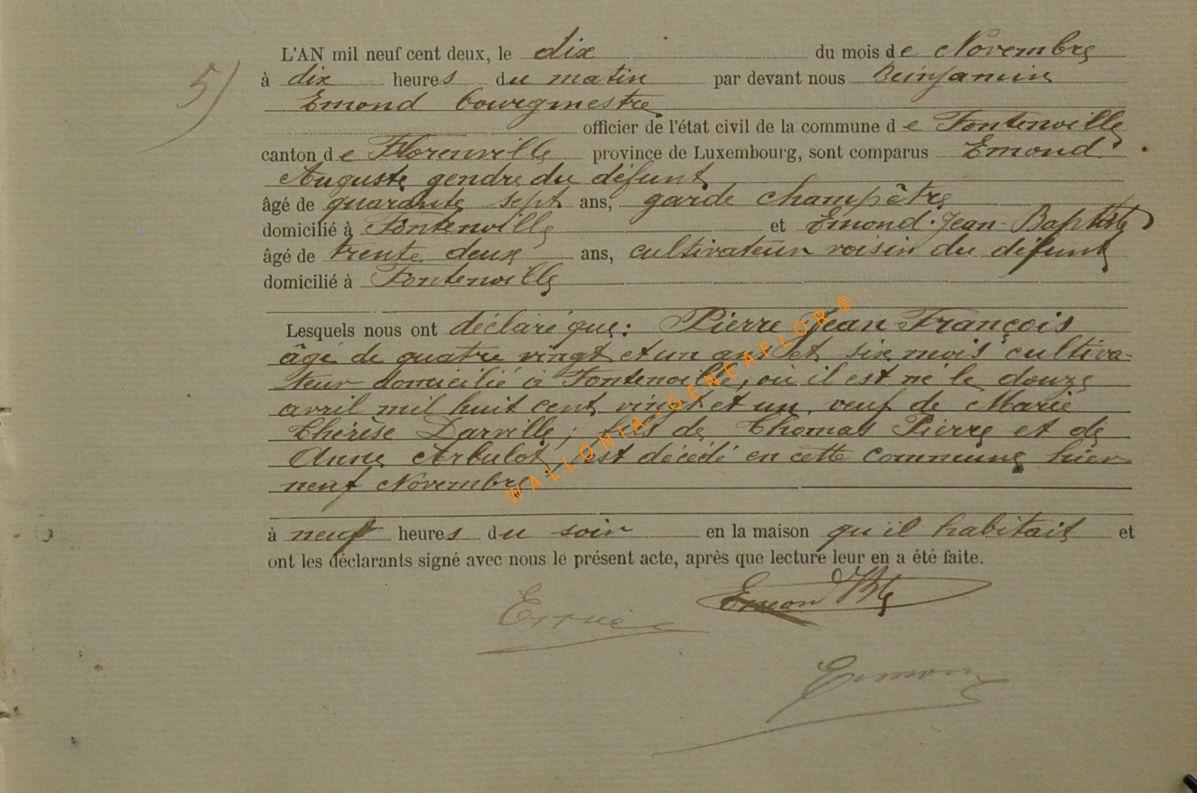 5)
L'AN mil neuf cent deux, le dix du mois de Novembre
à dix heures du matin par devant nous Beinjamin
Emond bourgmestre
officier de l'état civil de la commune de Fontenoille
canton de Florenville province de Luxembourg, sont comparus Emond
Auguste gendre du défunt
âgé de quarante sept ans, garde champêtre
domicilié à Fontenoille et Emond Jean-Baptiste
âgé de trente deux ans, cultivateur voisin du défunt
domicilié à Fontenoille
Lesquels nous ont déclaré que: Pierre Jean-François
âgé de quatre vingt et un ans et six mois, cultiva-
teur domicilié à Fontenoille, où il est né le douze
avril mil huit cent vingt et un, veuf de Marie
Thérèse Darville; fils de Thomas Pierre et de
Anne Arbulot, est décédé en cette commune hier
neuf Novembre
à neuf heures du soir en la maison qu'il habitait et
ont les déclarants signé avec nous le présent acte, après que lecture leur en a été faite.
Emond JBte
Emond
WALLONIA-GENEAFLOR®